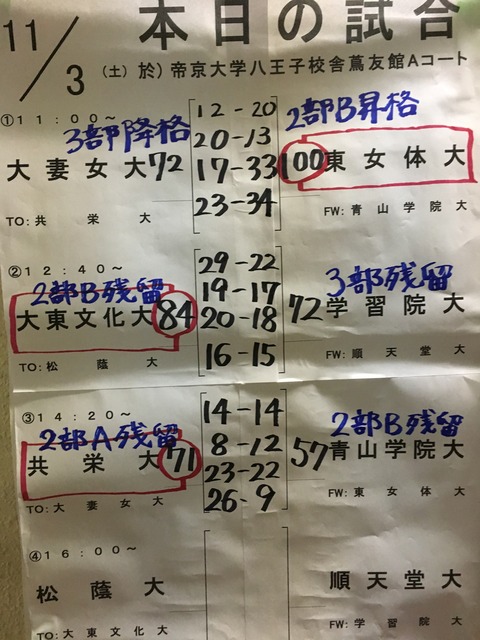 本日の試合
11/3 (土) 於) 帝京大学八王子校舎蔦友館Aコート
①11:00~ 12-20 2部B昇格
3部降格 20-13
大妻女大 72 17-33 100 東女体大
23-34
TO: 共栄大 FW: 青山学院大
②12:40~ 29-22 3部残留
2部B残留 19-17
大東文化大 84 20-18 72 学習院大
16-15
TO: 松蔭大 FW: 順天堂大
③14:20~ 14-14 2部B残留
2部A残留 8-12
共栄大 71 23-22 57 青山学院大
26-9
TO: 大妻女大 FW: 東女体大
④16:00~
松蔭大 順天堂大
TO: 大東文化大 FW: 学習院大